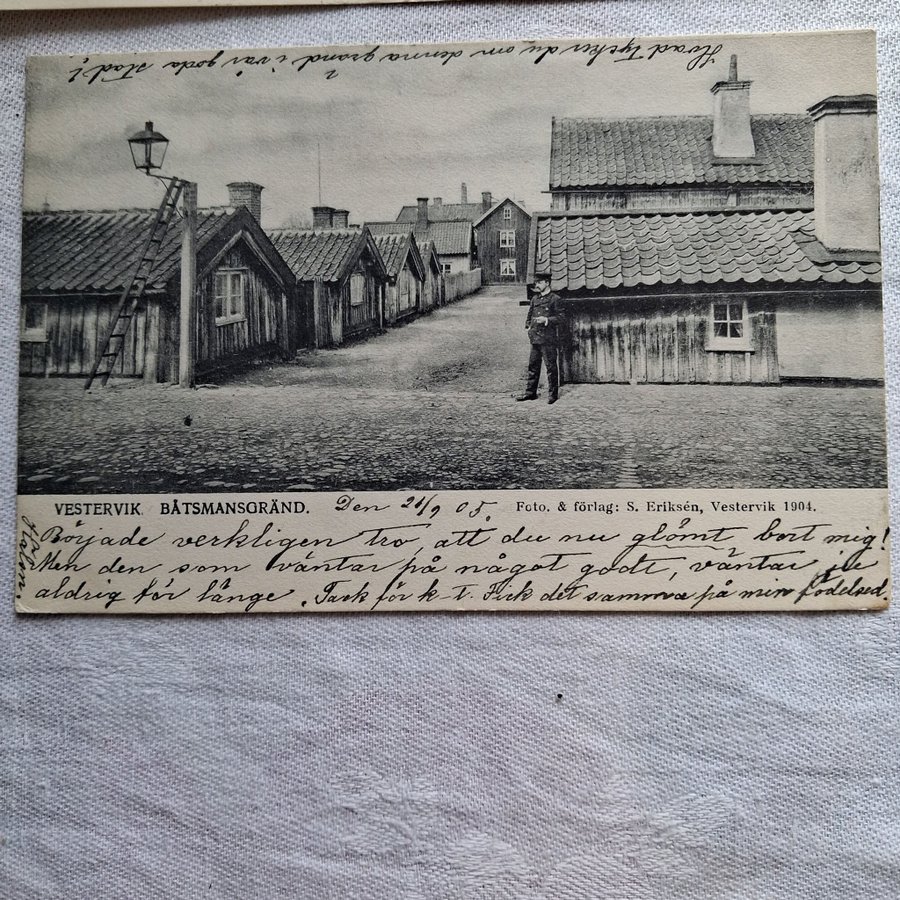 Hvad tycker du om denna gränd i vår goda stad?
VESTERVIK. BÅTSMANSGRÄND. Den 21/9 05. Foto. & förlag: S. Eriksén, Vestervik 1904.
Började verkligen tro, att du nu glömt bort mig!
Men den som väntar på något godt, väntar ju
aldrig för länge. Tack för k-t. Fick det samma på min födelsed.